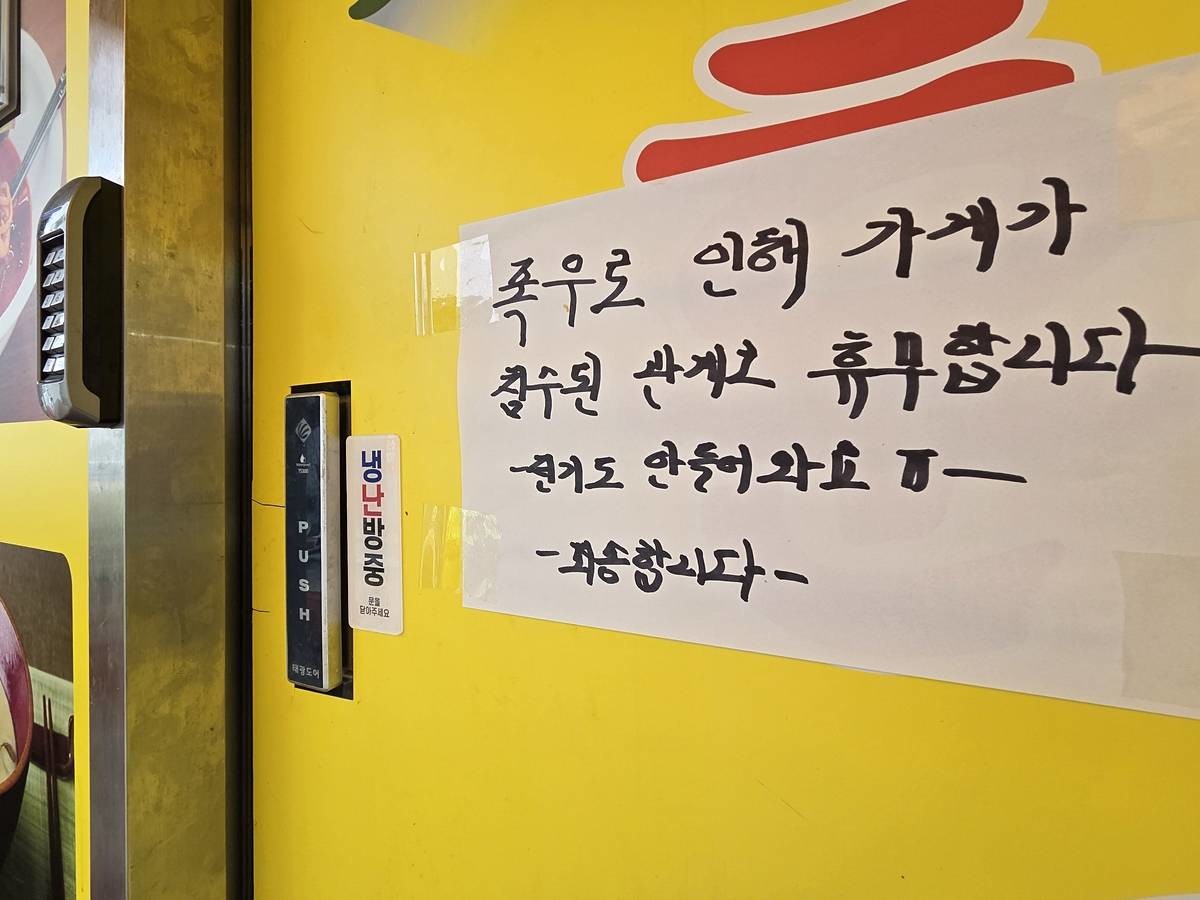 폭우로 인해 가게가
침수된 관계로 휴무합니다
전기도 안들어와요 ㅠ
- 죄송합니다 -
PUSH
태광도어
냉난방중
문을
닫아주세요